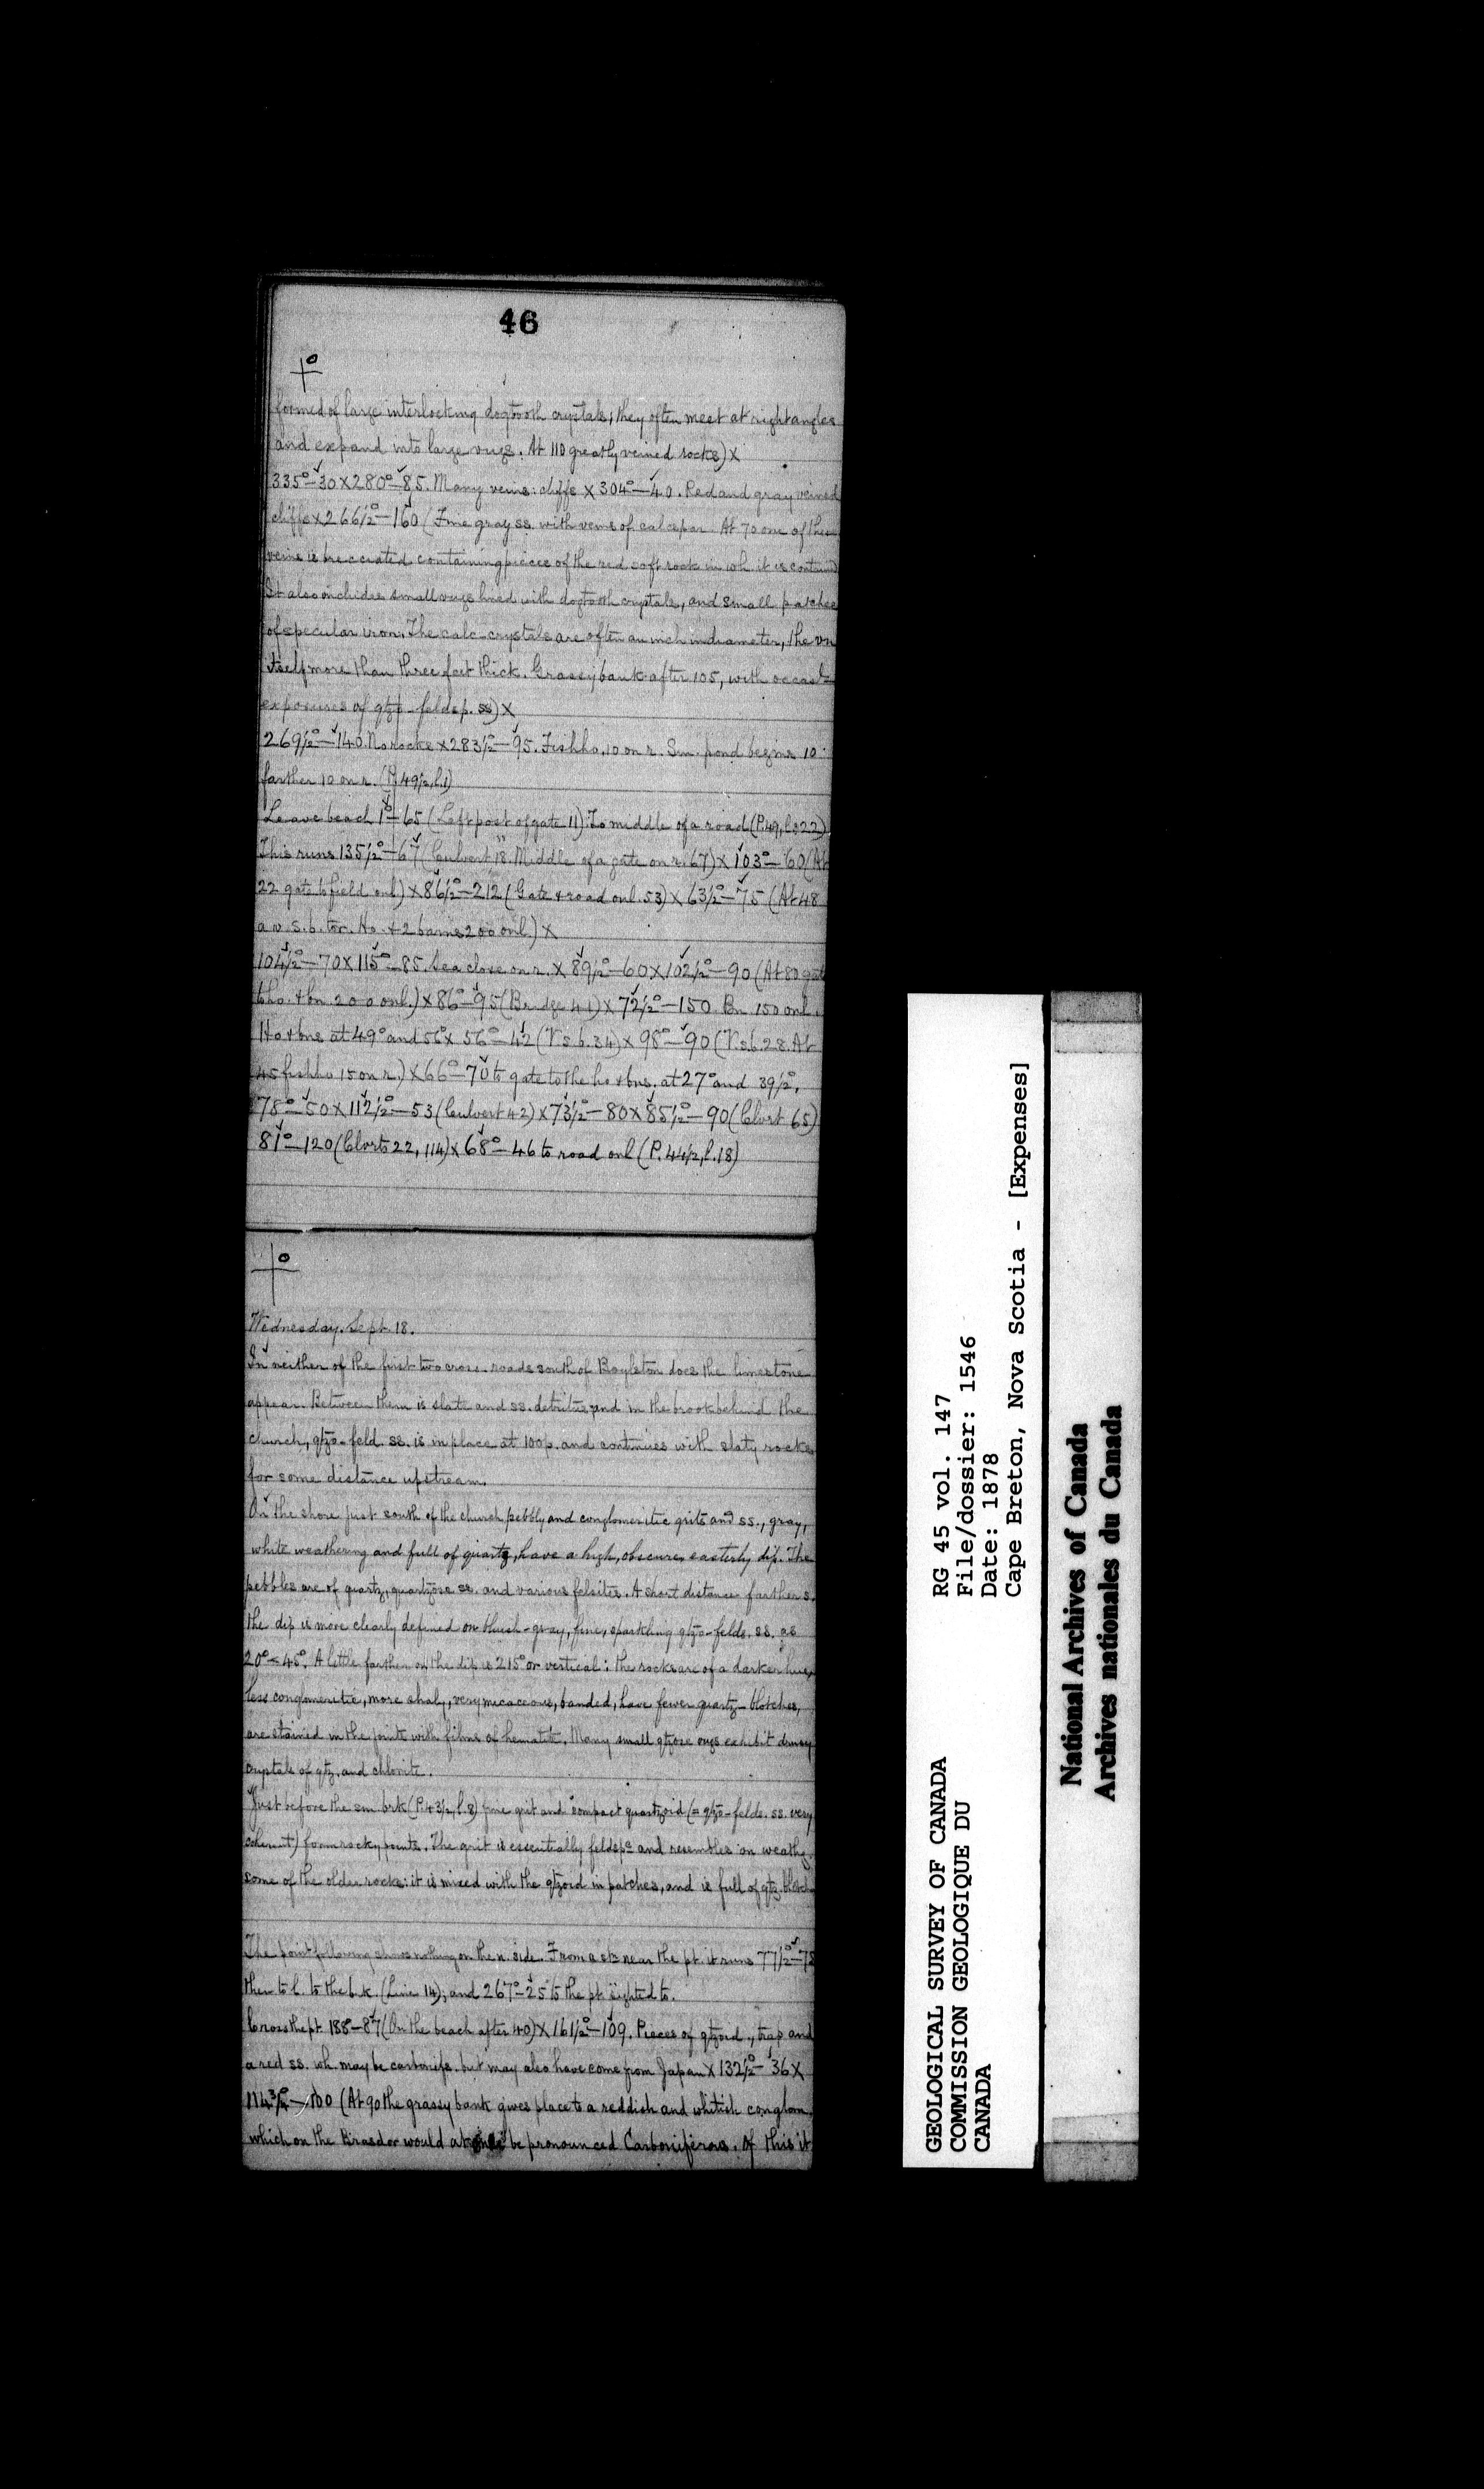 46
formed of large interlocking dogtooth crystals; they often meet at right angles
and expand into large vugs. At 110 greatly veined rocks) X
335°-30 X 280°-85. Many veins: cliffs X 304°-40. Red and gray veined
cliffs X 266½°-160 (Fine gray ss. with veins of calcspar. At 70 one of these
veins is brecciated containing pieces of the red soft rock in wh. it is contained
It also includes small vugs lined with dogtooth crystals, and small patches
of specular iron. The calc-crystals are often an inch in diameter, the vn
itself more than three feet thick. Grassy bank after 105, with occasl
exposures of qtzo-feldsp. ss) X
269½°-140. No rocks X 283½°-95. Fishho. 10 on r. Sm. pond begins 10
farther 10 on r. (P. 49½, l. 1)
Leave beach 1°-65 (Left post of gate 11). To middle of a road (P. 49, l. 22)
This runs 135½°-67 (Culvert 18. Middle of a gate on r. 67) X 103°-60 (At
22 gate to field on l) X 86½°-212 (Gate & road on l. 53) X 63½°-75 (At 48
a v. s. b. to r. Ho. & 2 barns 200 on l.) X
104½°-70 X 115°-85. Sea close on r. X 89½°-60 X 102½°-90 (At 80 gate
to ho. & bn 200 on l.) X 86°-95 (Bridge 41) X 72½°-150. Bn 150 on l.
Ho & bns at 49° and 56° X 56°-42 (V. s. b. 34) X 98°-90 (V. s. b. 28. At
45 fishho 15 on r.) X 66°-70 to gate to the ho & bns. at 27° and 39½°.
78°-50 X 112½°-53 (Culvert 42) X 73½°-80 X 85½°-90 (Clvrt 65)
81°-120 (Clvrts 22, 114) X 68°-46 to road on l (P. 44½, l. 18)
Wednesday. Sept. 18.
In neither of the first two cross-roads south of Boylston does the limestone
appear. Between them is slate and ss. detritus; and in the brook behind the
church, qtzo-feld. ss. is in place at 100 p. and continues with slaty rocks
for some distance upstream.
On the shore just south of the church pebbly and conglomeritic grits and ss., gray,
white weathering and full of quartz, have a high, obscure, easterly dip. The
pebbles are of quartz, quartzose ss. and various felsites. A short distance farther s.
the dip is more clearly defined on bluish-gray, fine, sparkling qtzo-felds. ss. as
20° < 45°. A little farther on the dip is 215° or vertical: the rocks are of a darker hue,
less conglomeritic, more shaly, very micaceous, banded, have fewer quartz-blotches,
are stained in the joints with films of hematite. Many small qtzose vugs exhibit drusy
crystals of qtz. and chlorite.
Just before the sm brk (P. 43½, l. 8) fine grit and compact quartzoid (= qtzo-felds. ss. very
coherent) form rocky points. The grit is essentially feldspc and resembles on weathg.
some of the older rocks: it is mixed with the qtzoid in patches, and is full of qtz. blotches
The point following shows nothing on the n. side. From a stn near the pt. it runs 77½°-75
then to l. to the b.k. (Line 14); and 267°-25 to the pt. sighted to.
Cross the pt. 188°-87 (On the beach after 40) X 161½°-109. Pieces of qtzoid., trap and
a red ss. wh. may be carbonifs. but may also have come from Japan X 132½°-36 X
114¾°-100 (At 90 the grassy bank gives place to a reddish and whitish conglom.
which on the Brasdor would at once be pronounced Carboniferous. Of this it
GEOLOGICAL SURVEY OF CANADA
COMMISSION GEOLOGIQUE DU
CANADA
RG 45 vol. 147
File/dossier: 1546
Date: 1878
Cape Breton, Nova Scotia - [Expenses]
National Archives of Canada
Archives nationales du Canada